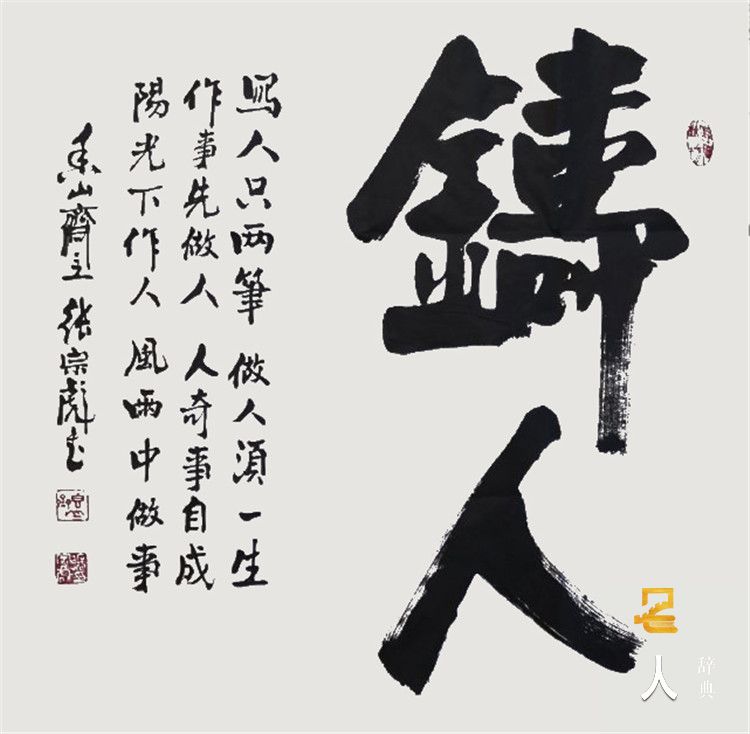 鑄人
寫人只两筆 做人湏一生
作事先做人 人奇事自成
陽光下作人 風雨中做事
山齋主 张宗彪书
名人
辞典